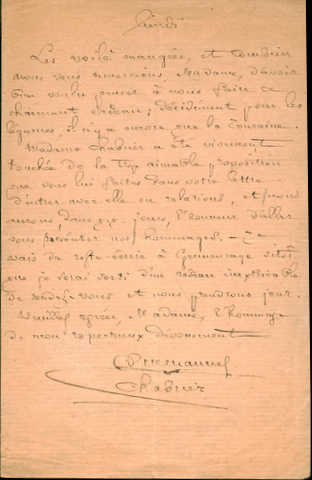 Lundi
Les voilà mangés, et combien
nous vous remercions, Madame, d'avoir
bien voulu penser à nous faire ce
charmant cadeau; décidément pour les
légumes, il n'y a encore que la Touraine.
Madame Chabrier a été vivement
touchée de la très aimable proposition
que vous lui faites dans votre lettre
d'entrer avec elle en relations, et nous
aurons, dans q.q. jours, l'honneur d'aller
vous présenter nos hommages. - Je
vais du reste écrire à sitôt
que je serai sorti d'un réseau inextricable
de rendez-vous et nous prendrons jour.
Veuillez agréer, Madame, l'hommage
de mon respectueux dévouement
Emmanuel
Chabrier